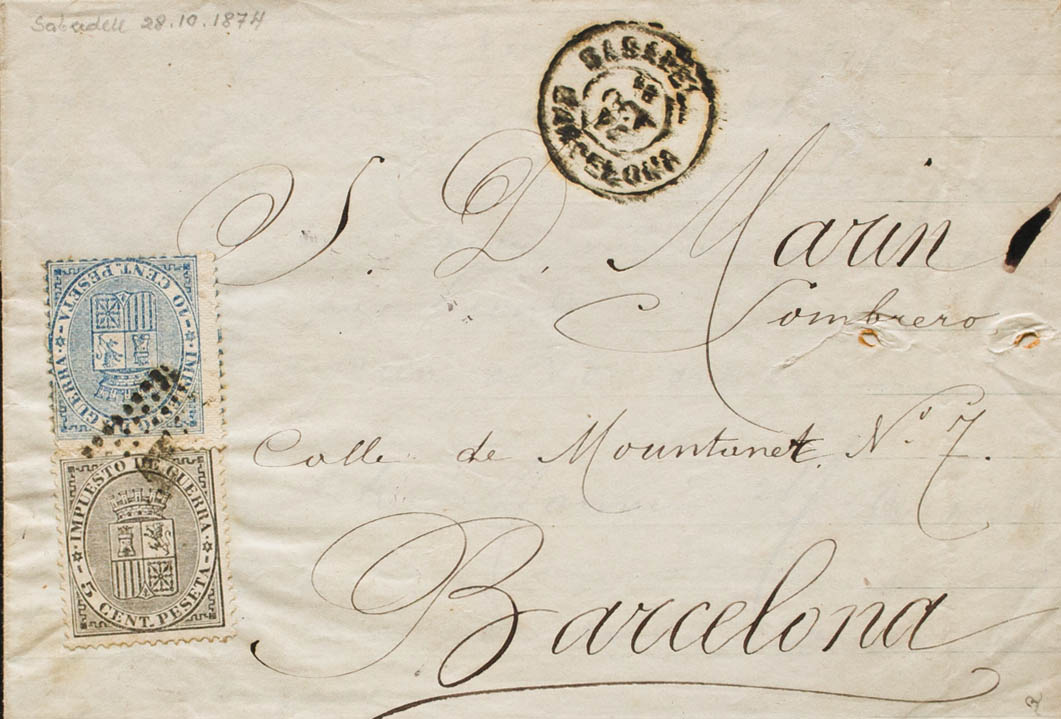 Sabadell 28.10.1874
SABADELL
BARCELONA
S. D. Marin
Sombrero
Calle de Mountanet. Nº 7.
Barcelona
IMPUESTO DE GUERRA
10 CENT. PESETA
IMPUESTO DE GUERRA
5 CENT. PESETA